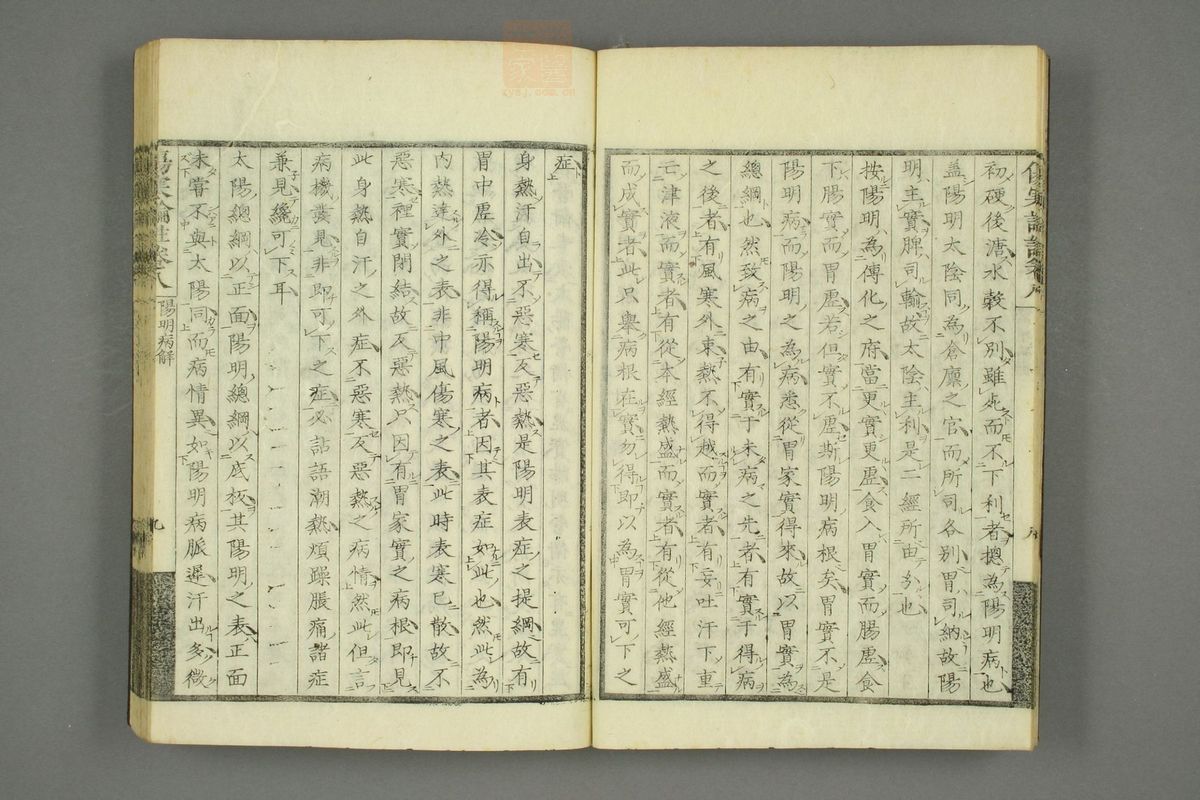 初硬後溏水穀不別雖㽲而不下利者摠為陽明病也
蓋陽明太陰同為倉廩之官而所司各別胃司納故陽
明主實脾司輸故太陰主利是二經所由分也
按陽明為傳化之府當更實更虛食入胃實而腸虛食
下腸實而胃虛若但實不虛斯陽明病根矣胃實不是
陽明病而陽明之為病悉從胃家實得來故以胃實為
總綱也然致病之由有實于未病之先者有實于得病
之後者有風寒外束熱不得越而實者有妄吐汗下重
亡津液而實者有從本經熱盛而實者有從他經熱盛
而成實者此只舉病根在實勿得即以為胃實可下之
症
身熱汗自出不惡寒反惡熱是陽明表症之提綱故有
胃中虛冷亦得稱陽明病者因其表症如此也然此為
內熱達外之表非中風傷寒之表此時表寒已散故不
惡寒裡實閉結故反惡熱只因有胃家實之病根即見
此身熱自汗之外症不惡寒反惡熱之病情然此但言
病機發見非即可下之症必詀語潮熱煩躁脹痛諸症
兼見纔可下耳
太陽總綱以正面陽明總綱以底板其陽明之表正面
未嘗不與太陽同而病情異如陽明病脈遲汗出多微
陽明病解
九